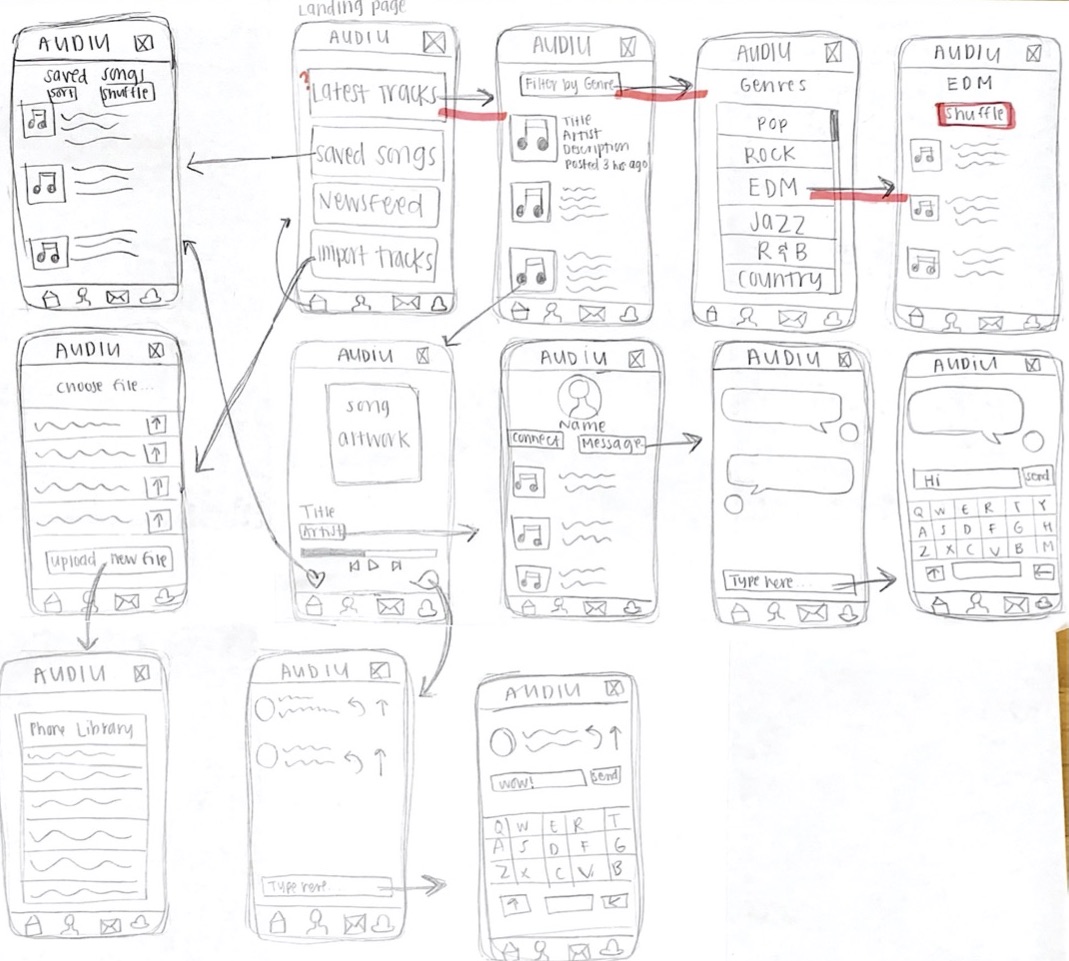 Landing page
AUDIU
saved songs
sort
shuffle
AUDIU
?
Latest Tracks
saved songs
Newsfeed
import tracks
AUDIU
Filter by Genre
Title
Artist
Description
Posted 3 hr ago
AUDIU
Genres
POP
ROCK
EDM
Jazz
R&B
Country
AUDIU
EDM
shuffle
AUDIU
choose file...
upload new file
AUDIU
song
artwork
Title
Artist
AUDIU
Name
connect
Message
AUDIU
Type here...
AUDIU
Hi
send
Q W E R T Y
A S D F G H
Z X C V B M
AUDIU
Phone Library
AUDIU
Type here...
AUDIU
wow!
send
Q W E R T
A S D F G
Z X C V B